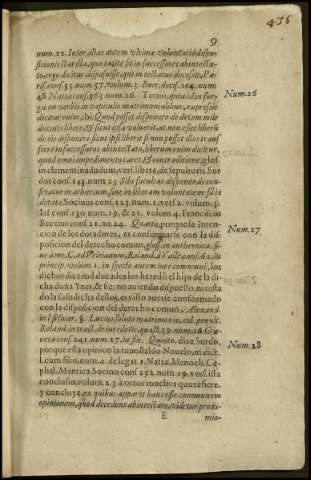 476
9
num. 12. Inter alias autem vltimæ voluntatis dispo-
sitiones est at illa, qua tacitè fit in successores ab intesta-
to ergo dicitur disposuisse, qui intestatus decessit, Pa-
ris. cons. 35. num. 57. volum. 3. Roce, decis. 204. num.
46 Natta cons. 563. num. 26. Tertiò, quia id in sur-
ex verbis in capitulis matrimonialibus, expressis
dicitur enim, ibi: Quod posset disponere de decem mile
ducatis liberè & sicut ipsa voluerit, at non esset liberū
de eis disponere sicut ipsi liberet si non posset illos trans-
ferre in successores ab intestato, liberum enim dicitur,
quod omni impedimento caret & contraditione, glos.
in clement in adudum, vers. liberè, de sepulturis, Sur
dus cons. 145. num 23. Sibi facultas disponendi con-
seratur in arbitrium, siue in liberam voluntatem
datæ. Socinus cons. 125. num. 21. vers. 2. volum. 3.
Ias cons. 130. num. 19. & 21. volum. 4. Franciscus
Beccius cons. 21. nu. 24. Quarto, porque la inten-
cion de los dotadores, es conformarse con la dis-
posicion del derecho comun, glos. in authentica. si-
ue à me, C. ad Velleianum, Roland. à Valle cons. 62. In
princip. volum. 1. in spetto autem iure communi, los
dichos diez mil ducados los heredò el hijo de la di
cha doña Ynes, & sic no auiendo dispuesto, ni testa-
do la susodicha dellos, es visto auerse conformado
con la disposicion del derecho comun. Alexand.
in l. si socer. §. Lucius soluto matrimonio, col. penult.
Roland. in tract. de lucr. dotis, quæst. 39. num. 16. Cra
ueta cons. 241. num. 17. in fin. Quinto, dize Surdo,
porque esta opinion la tuuo Baldo Nouelo, in dict.
l. cum filio, num. 2. de legat. 1. Natta, Menoch. Ce-
phal. Mantica. Socino cons. 252. num. 19. vers. ista
conclusio, volum. 2. y à otros muchos que refiere,
y concluye ex quibus apparet hanc esse communem
opinionem, quod decedens ab intestato, videtur proxi-
E
mio-
Num. 26
Num. 27
Num. 28